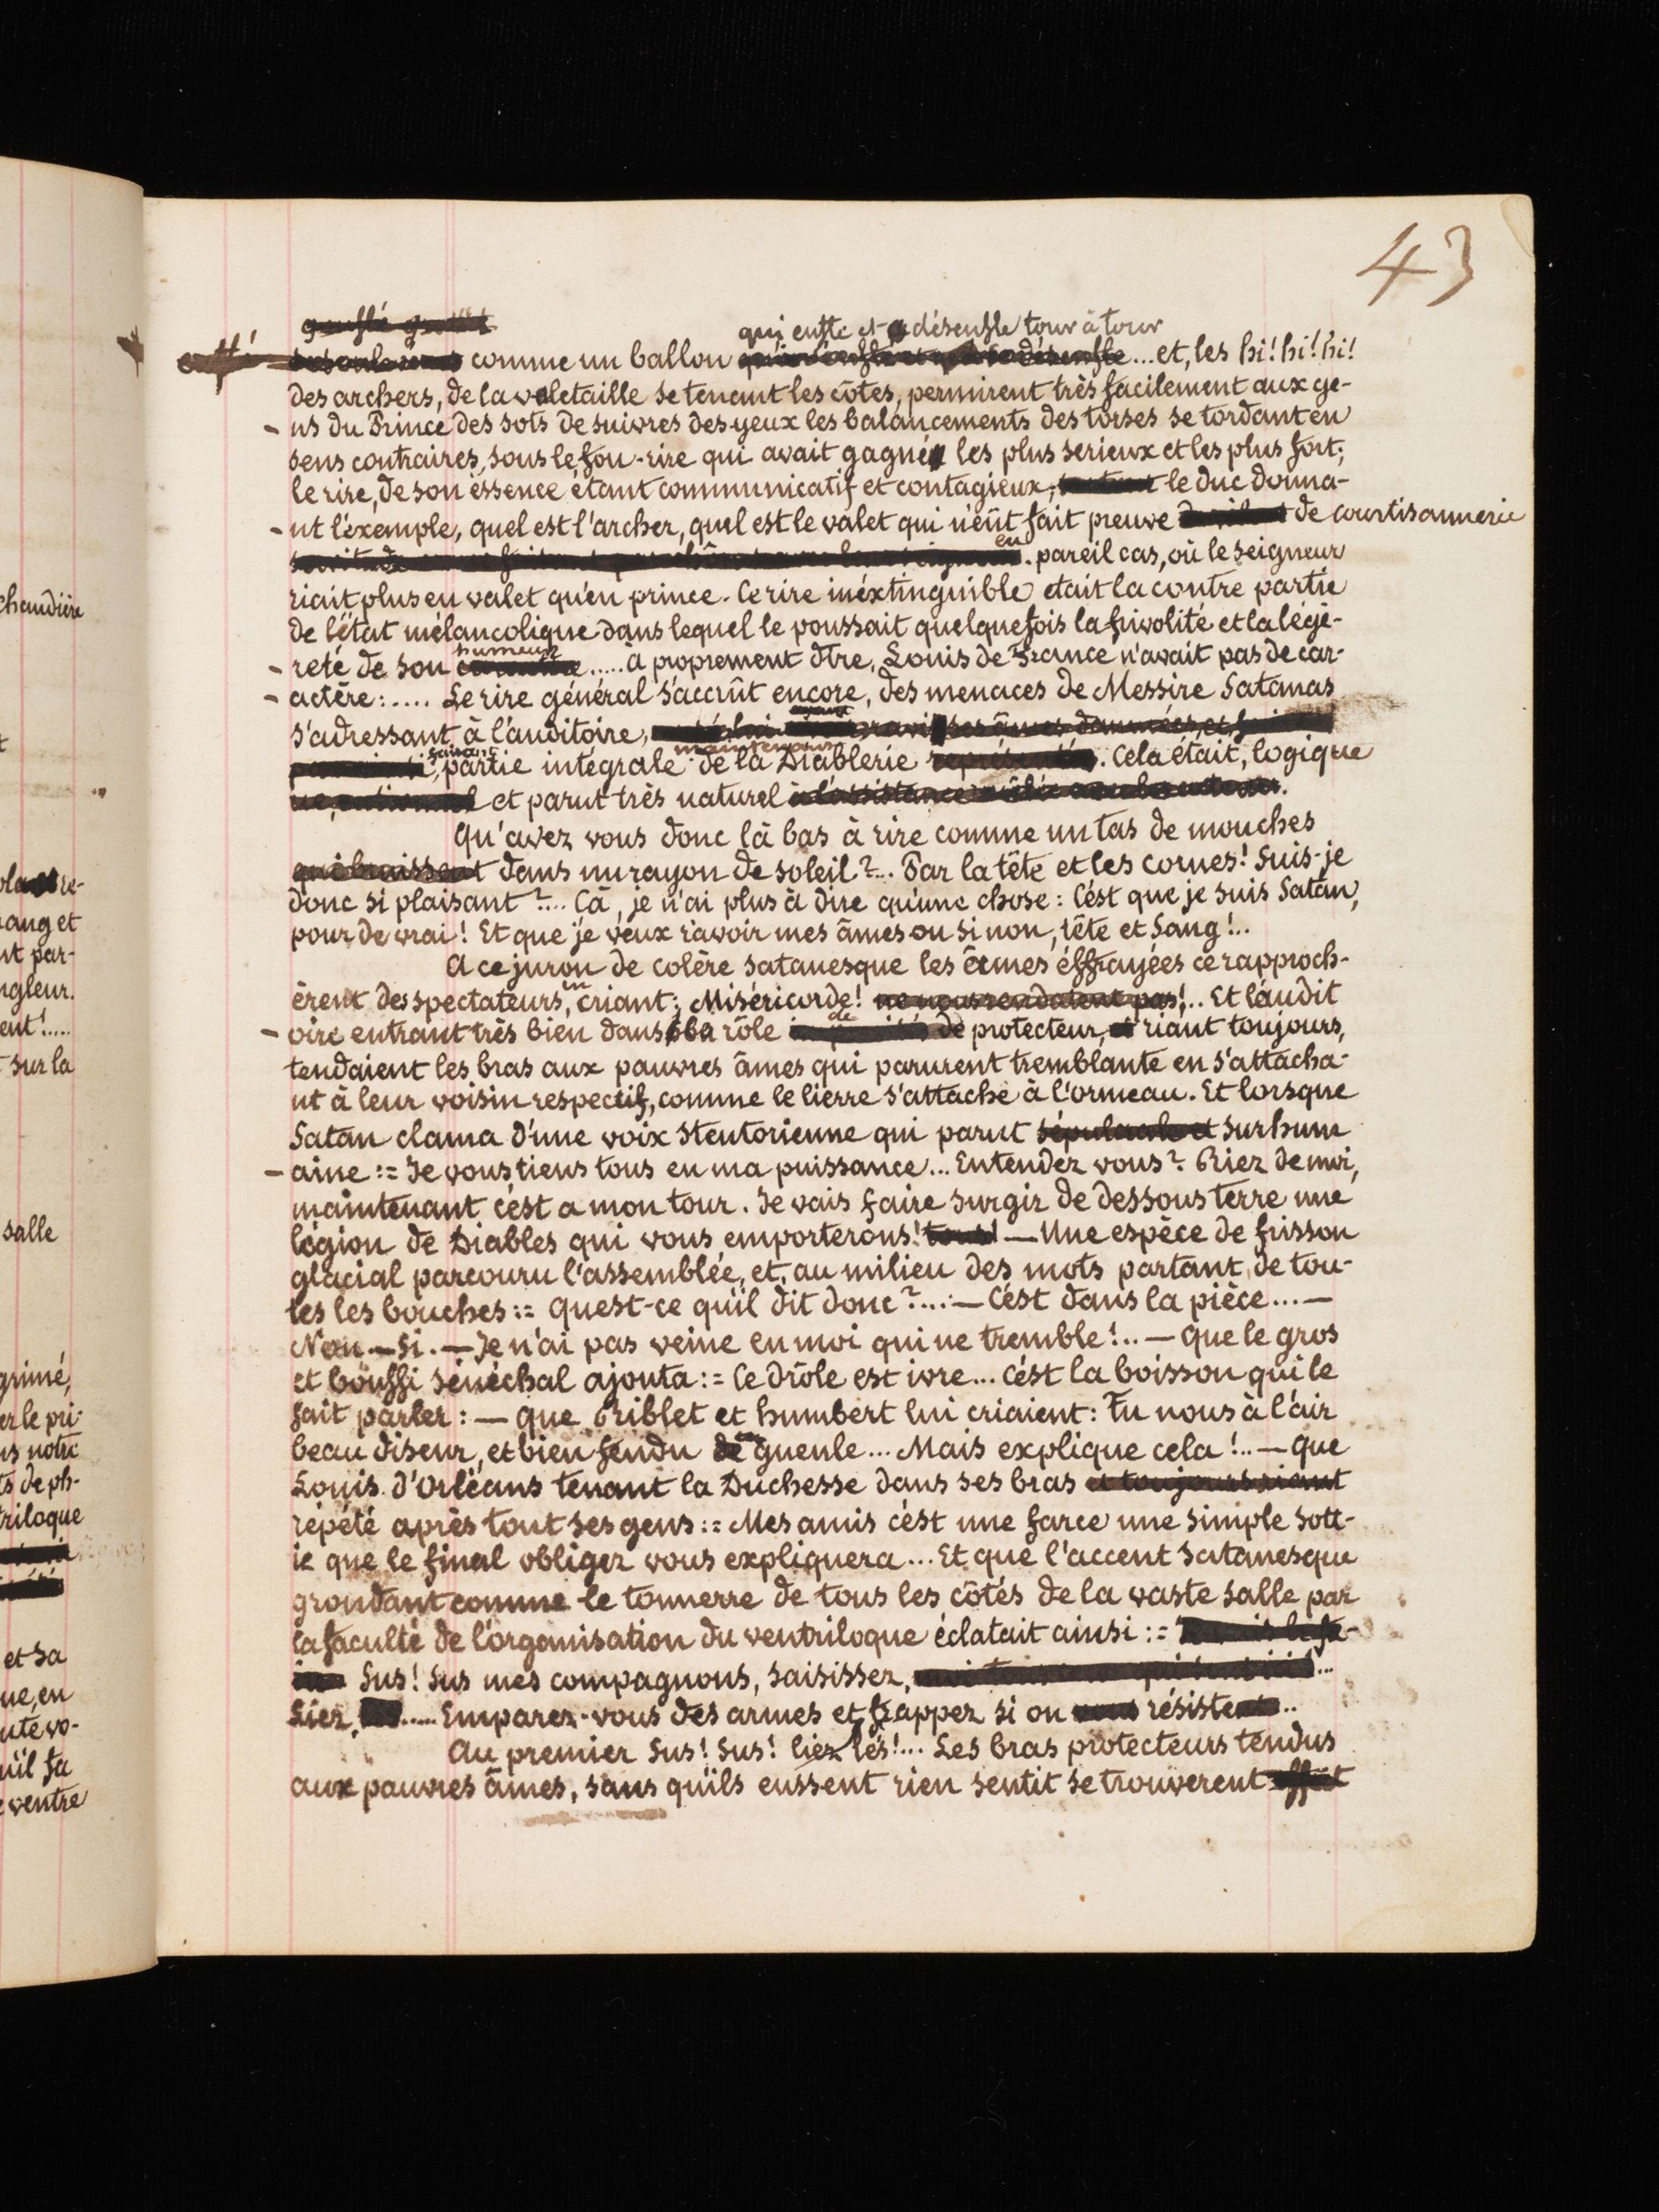 43
qui enfle et désenfle tour à tour
comme un ballon ... et, les hi! hi! hi!
des archers, de la valetaille se tenant les côtes, permirent très facilement aux ge-
- ns du Prince des sots de suivres des yeux les balancements des torses se tordant en
sens contraires, sous le fou-rire qui avait gagné les plus serieux et les plus fort;
le rire, de son éssence étant communicatif et contagieux, le duc donna-
- nt l'éxemple, quel est l'archer, quel est le valet qui n'eût fait preuve de courtisannerie
en pareil cas, où le seigneur
riait plus en valet qu'en prince. Ce rire inéxtinguible etait la contre partie
de l'état mélancolique dans lequel le poussait quelque fois la frivolité et la légè-
- reté de son humeur ..... à proprement dtre, Louis de France n'avait pas de car-
- actère: .... Le rire général s'accrût encore, des menaces de Messire Satanas
s'adressant à l'auditoire,
faisant maintenant
partie intégrale de la Diablerie. Cela était, logique
et parut très naturel
Qu'avez vous donc là bas à rire comme un tas de mouches
qui bruissent dans un rayon de soleil?... Par la tête et les cornes! Suis-je
donc si plaisant?... Cà, je n'ai plus à dire qu'une chose: C'ést que je suis Satan,
pour de vrai! Et que je veux r'avoir mes âmes ou si non, tête et sang!..
A ce juron de colère satanesque les âmes éffrayées ce rapproch-
èrent des spectateurs, en criant; Miséricorde! ne nous rendatent pas!.. Et l'audit
- oire entrant très bien dans rôle de protecteur, et riant toujours,
tendaient les bras aux pauvres âmes qui parurent tremblante en s'attacha-
nt à leur voisin respectif, comme le lierre s'attache à l'ormeau. Et lorsque
Satan clama d'une voix stentorienne qui parut sépulcrale et surhum
- aine := Je vous tiens tous en ma puissance... Entendez vous? Riez de moi,
maintenant c'ést a mon tour. Je vais faire surgir de dessous terre une
légion de Diables qui vous emporterons! tous! — Une espèce de frisson
glacial parcouru l'assemblée, et, au milieu des mots partant, de tou-
tes les bouches := Quest-ce qu'il dit donc?...:— C'ést dans la pièce...—
Non — Si. — Je n'ai pas veine en moi qui ne tremble!.. — Que le gros
et bouffi sénéchal ajouta := Ce drôle est ivre... C'ést la boisson qui le
fait parler: — Que Griblet et humbert lui criaient: Tu nous à l'air
beau diseur, et bien fendu de gueule... Mais explique cela!.. — Que
Louis d'Orléans tenant la Duchesse dans ses bras et toujours riant
répété après tout ses gens := Mes amis c'ést une farce une simple sott-
ie que le final obliger vous expliquera... Et que l'accent satanesque
grondant comme le tonnerre de tous les côtés de la vaste salle par
la faculté de l'organisation du ventriloque éclatait ainsi :=
Sus! Sus mes compagnons, saisissez, ...
Liez, ..... Emparez-vous des armes et frappez si on vous résiste ..
Au premier Sus! Sus! liez lés!... Les bras protecteurs tendus
aux pauvres âmes, sans qu'ils eussent rien sentit se trouverent
chaudière
ang et
nt par-
ngleur.
ent!....
sur la
salle
grimé,
er le pri-
ns notre
ts de ph-
triloque
et sa
ue, en
uté vo-
u'il fa
ventre